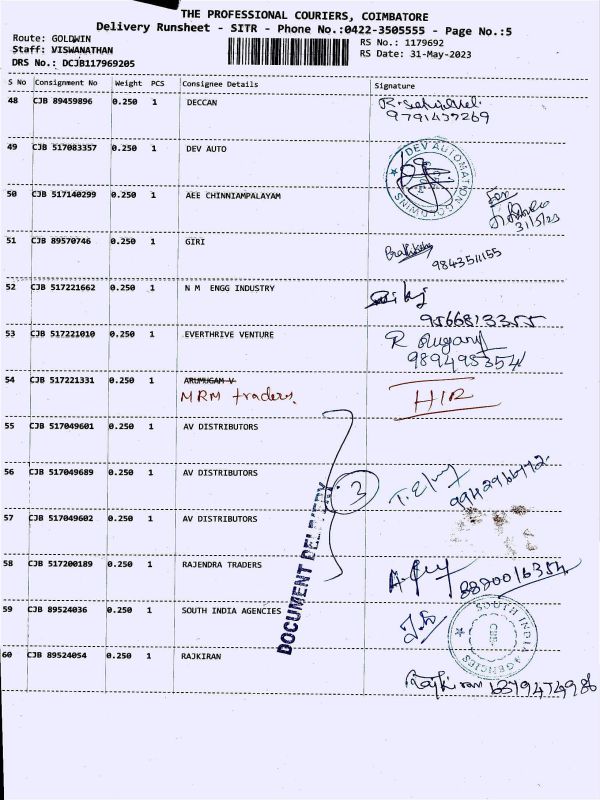 THE PROFESSIONAL COURIERS, COIMBATORE
Delivery Runsheet - SITR - Phone No.:0422-3505555 - Page No.:5
Route: GOLDWIN
Staff: VISWANATHAN
DRS No.: DCJB117969205
RS No.: 1179692
RS Date: 31-May-2023
S No Consignment No Weight PCS Consignee Details Signature
48 CJB 89459896 0.250 1 DECCAN
49 CJB 517083357 0.250 1 DEV AUTO
DEV AUTOMATION
GOLDWINS
50 CJB 517140299 0.250 1 AEE CHINNIAMPALAYAM
31/5/23
51 CJB 89570746 0.250 1 GIRI
9843511155
52 CJB 517221662 0.250 1 N M ENGG INDUSTRY
9566813355
53 CJB 517221010 0.250 1 EVERTHRIVE VENTURE
54 CJB 517221331 0.250 1 ARUMUGAM V
MRM traders
55 CJB 517049601 0.250 1 AV DISTRIBUTORS
56 CJB 517049689 0.250 1 AV DISTRIBUTORS
3
57 CJB 517049602 0.250 1 AV DISTRIBUTORS
DOCUMENT DELIVERY
58 CJB 517200189 0.250 1 RAJENDRA TRADERS
59 CJB 89524036 0.250 1 SOUTH INDIA AGENCIES
SOUTH INDIA AGENCIES
60 CJB 89524054 0.250 1 RAJKIRAN
Rajkiran